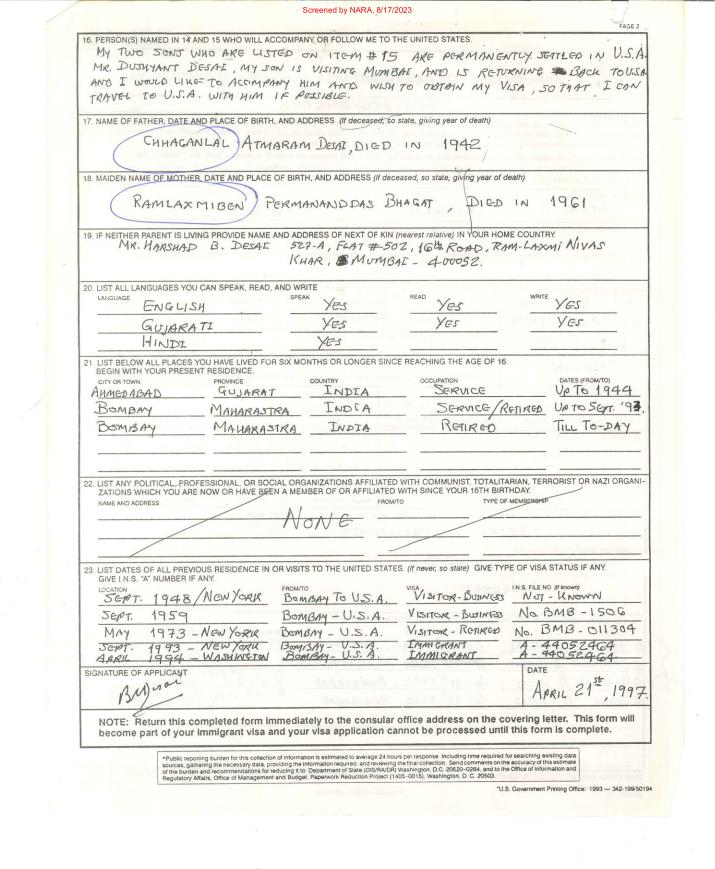 Screened by NARA, 8/17/2023
PAGE 2
16. PERSON(S) NAMED IN 14 AND 15 WHO WILL ACCOMPANY OR FOLLOW ME TO THE UNITED STATES.
MY TWO SONS WHO ARE LISTED ON ITEM # 15 ARE PERMANENTLY SETTLED IN U.S.A.
MR. DUSHYANT DESAI, MY SON IS VISITING MUMBAI, AND IS RETURNING BACK TO USA
AND I WOULD LIKE TO ACCOMPANY HIM AND WISH TO OBTAIN MY VISA, SO THAT I CAN
TRAVEL TO U.S.A. WITH HIM IF POSSIBLE.
17. NAME OF FATHER, DATE AND PLACE OF BIRTH, AND ADDRESS (If deceased, so state, giving year of death)
CHHAGANLAL ATMARAM DESAI, DIED IN 1942
18. MAIDEN NAME OF MOTHER, DATE AND PLACE OF BIRTH, AND ADDRESS (If deceased, so state, giving year of death)
RAMLAXMIBEN PERMANANDDAS BHAGAT, DIED IN 1961
19. IF NEITHER PARENT IS LIVING PROVIDE NAME AND ADDRESS OF NEXT OF KIN (nearest relative) IN YOUR HOME COUNTRY.
MR. HARSHAD B. DESAI 527-A, FLAT #502, 16th ROAD, RAM-LAXMI NIVAS
KHAR, MUMBAI - 400052.
20. LIST ALL LANGUAGES YOU CAN SPEAK, READ, AND WRITE
LANGUAGE SPEAK READ WRITE
ENGLISH YES YES YES
GUJARATI YES YES YES
HINDI YES
21. LIST BELOW ALL PLACES YOU HAVE LIVED FOR SIX MONTHS OR LONGER SINCE REACHING THE AGE OF 16.
BEGIN WITH YOUR PRESENT RESIDENCE.
CITY OR TOWN PROVINCE COUNTRY OCCUPATION DATES (FROM/TO)
AHMEDABAD GUJARAT INDIA SERVICE UP TO 1944
BOMBAY MAHARASTRA INDIA SERVICE/RETIRED UP TO SEPT. '93.
BOMBAY MAHARASTRA INDIA RETIRED TILL TO-DAY
22. LIST ANY POLITICAL, PROFESSIONAL, OR SOCIAL ORGANIZATIONS AFFILIATED WITH COMMUNIST, TOTALITARIAN, TERRORIST OR NAZI ORGANI-
ZATIONS WHICH YOU ARE NOW OR HAVE BEEN A MEMBER OF OR AFFILIATED WITH SINCE YOUR 15TH BIRTHDAY.
NAME AND ADDRESS FROM/TO TYPE OF MEMBERSHIP
NONE
23. LIST DATES OF ALL PREVIOUS RESIDENCE IN OR VISITS TO THE UNITED STATES. (If never, so state) GIVE TYPE OF VISA STATUS IF ANY.
GIVE I.N.S. "A" NUMBER IF ANY.
LOCATION FROM/TO VISA I.N.S. FILE NO (If known)
SEPT. 1948/NEW YORK BOMBAY TO U.S.A. VISITOR-BUSINESS NOT-KNOWN
SEPT. 1959 BOMBAY-U.S.A. VISITOR-BUSINESS No BMB-1506
MAY 1973-NEW YORK BOMBAY-U.S.A. VISITOR-RETIRED No. BMB-011304
SEPT. 1993-NEW YORK BOMBAY-U.S.A. IMMIGRANT A-44052464
APRIL 1994-WASHINGTON BOMBAY-U.S.A. IMMIGRANT A-44052464
SIGNATURE OF APPLICANT DATE
APRIL 21st, 1997.
NOTE: Return this completed form immediately to the consular office address on the covering letter. This form will
become part of your immigrant visa and your visa application cannot be processed until this form is complete.
*Public reporting burden for this collection of information is estimated to average 24 hours per response including time required for searching existing data
sources, gathering the necessary data, providing the information required, and reviewing the final collection. Send comments on the accuracy of this estimate
of the burden and recommendations for reducing it to: Department of State (OIS/RA/DR) Washington, D.C. 20520-0264, and to the Office of Information and
Regulatory Affairs, Office of Management and Budget, Paperwork Reduction Project (1405-0015), Washington, D.C. 20503.
*U.S. Government Printing Office: 1993 — 342-199/50194